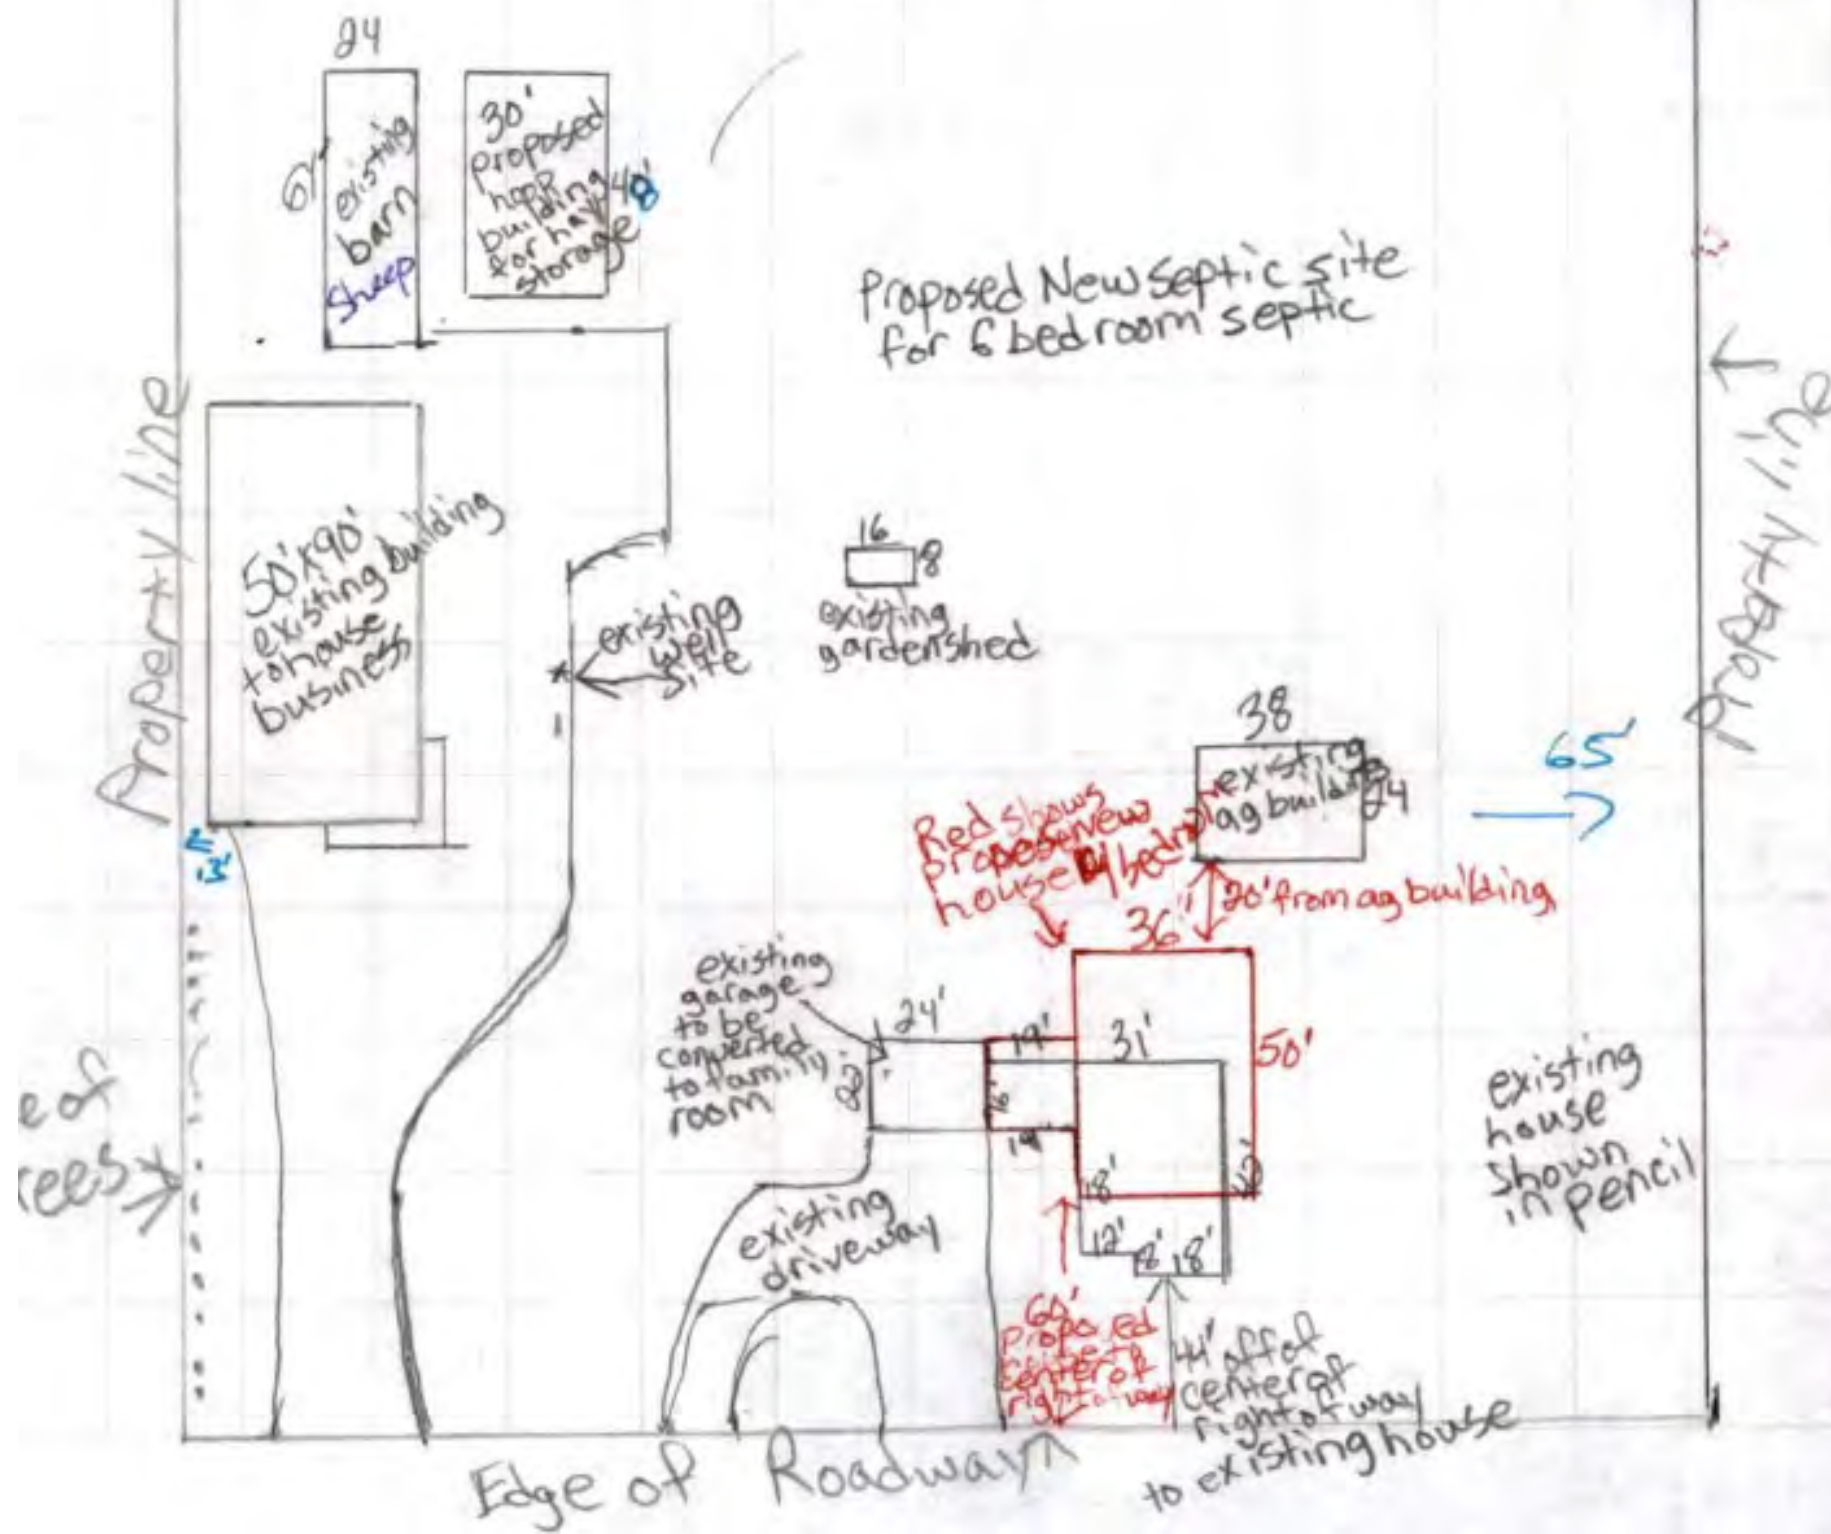 24
61'
existing
barn
sheep
30'
proposed
hoop
building
for hay
storage
48'
Proposed New septic site
for 6 bedroom septic
Property line
Property line
50'x90'
existing building
to house
business
existing
well
site
16
8
existing
gardenshed
38
existing
ag building
24
65'
13'
Red shows
proposed new
house 4 bedroom
36'
20' from ag building
existing
garage
to be
converted
to family
room
24'
19'
31'
50'
19'
18'
12'
8'
18'
existing
house
shown
in pencil
e of
rees
existing
driveway
60'
proposed
center of
right of way
44' off of
center of
right of way
to existing house
Edge of Roadway